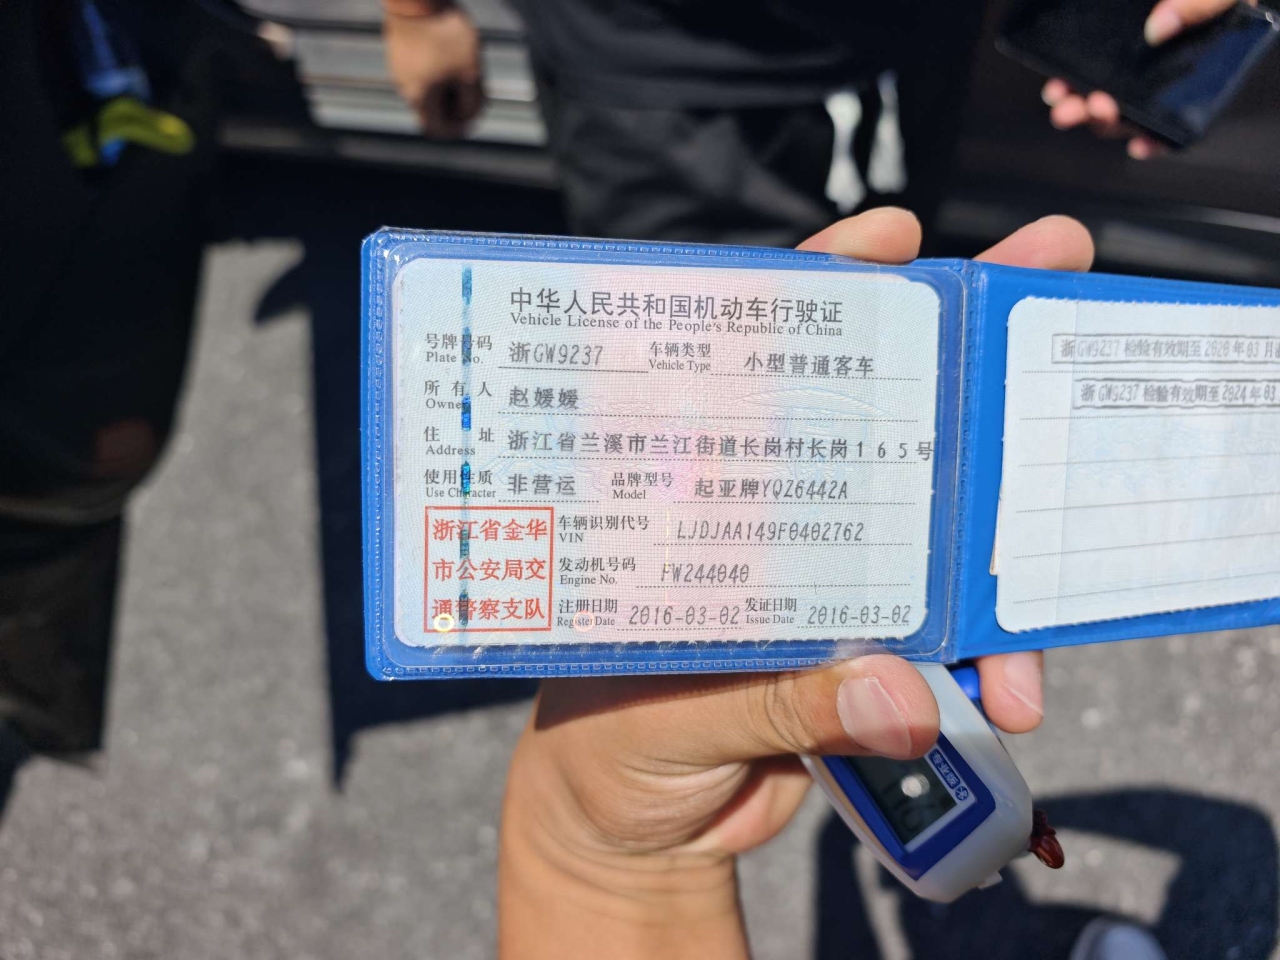 中华人民共和国机动车行驶证
Vehicle License of the People's Republic of China
号牌号码 浙GW9237 车辆类型 小型普通客车
Plate No. Vehicle Type
所有人 赵媛媛
Owner
住址 浙江省兰溪市兰江街道长岗村长岗165号
Address
使用性质 非营运 品牌型号 起亚牌YQZ6442A
Use Character Model
浙江省金华
市公安局交
通警察支队
车辆识别代号 LJDJAA149F0402762
VIN
发动机号码 FW244040
Engine No.
注册日期 2016-03-02 发证日期 2016-03-02
Register Date Issue Date
浙GW9237 检验有效期至2020年03月
浙GW9237 检验有效期至2024年03